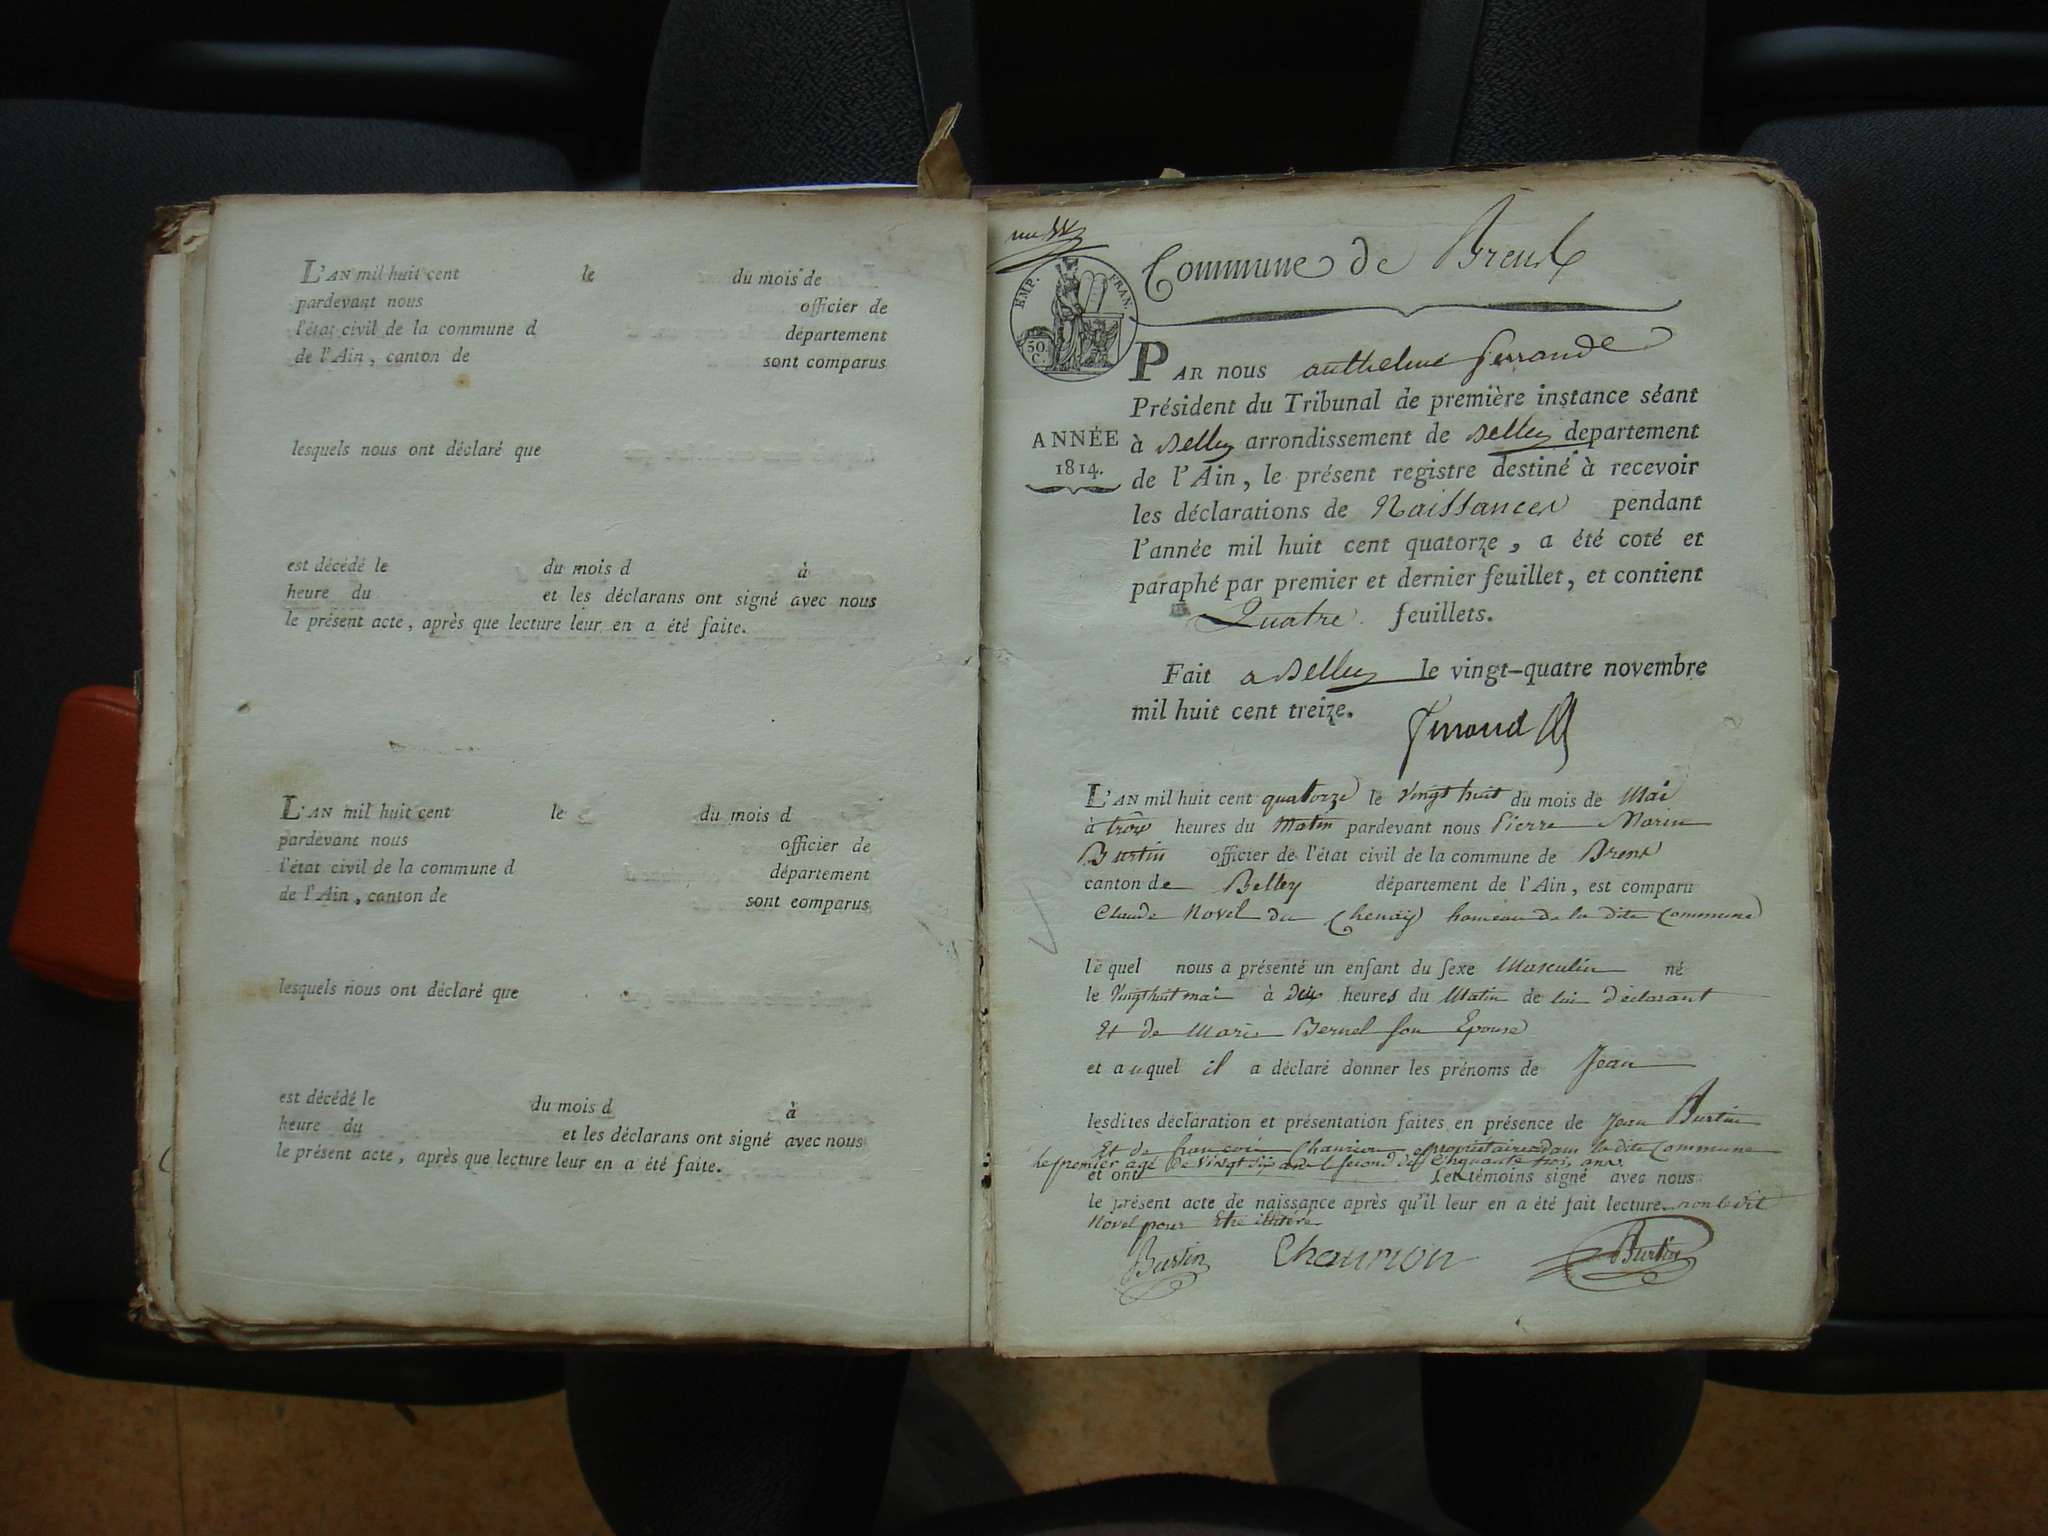 L'AN mil huit cent le du mois de
pardevant nous officier de
l'état civil de la commune d département
de l'Ain, canton de sont comparus
lesquels nous ont déclaré que
est décédé le du mois d à
heure du et les déclarans ont signé avec nous
le présent acte, après que lecture leur en a été faite.
L'AN mil huit cent le du mois d
pardevant nous officier de
l'état civil de la commune d département
de l'Ain, canton de sont comparus
lesquels nous ont déclaré que
est décédé le du mois d à
heure du et les déclarans ont signé avec nous
le présent acte, après que lecture leur en a été faite.
Commune de
EMP. FRAN.
50 C.
PAR nous anthelme
Président du Tribunal de première instance séant
ANNÉE
1814.
à Belley arrondissement de Belley departement
de l'Ain, le présent registre destiné à recevoir
les déclarations de Naissances pendant
l'année mil huit cent quatorze, a été coté et
paraphé par premier et dernier feuillet, et contient
Quatre feuillets.
Fait a Belley le vingt-quatre novembre
mil huit cent treize.
L'AN mil huit cent quatorze le vingt huit du mois de Mai
à heures du Matin pardevant nous Pierre Marin
Burtin officier de l'état civil de la commune de Brens
canton de Belley département de l'Ain, est comparu
Claude Novel du Chenay hameau de la dite Commune
lequel nous a présenté un enfant du sexe Masculin né
le Vingt huit mai à deux heures du Matin de lui déclarant
Et de Marie Bernel son Epouse
et auquel il a déclaré donner les prénoms de Jean
lesdites déclaration et présentation faites en présence de Jean Burtin
Et de françois Chaurion propriétaires dans la dite Commune
le premier agé de Vingt six ans le second de Cinquante trois ans
et ont Les témoins signé avec nous
le présent acte de naissance après qu'il leur en a été fait lecture. non ledit
Novel pour Etre illitéré
Burtin Chaurion Burtin